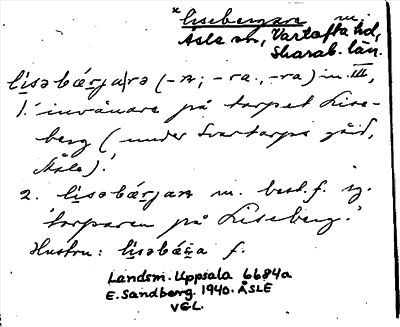 *lisebergare m.
Åsle sn, Vartofta hd,
Skarab. län.
lisəbærja|rə (-n; -ra., -ra) m. III,
1. 'invånare på torpet Lise-
berg (under Svartarps gård,
Åsle).'
2. lisəbærjan m. best. f. sg.
'torparen på Liseberg.'
Hustru: f.
Landsm. Uppsala 6684a
E. Sandberg. 1940. ÅSLE
VGL.